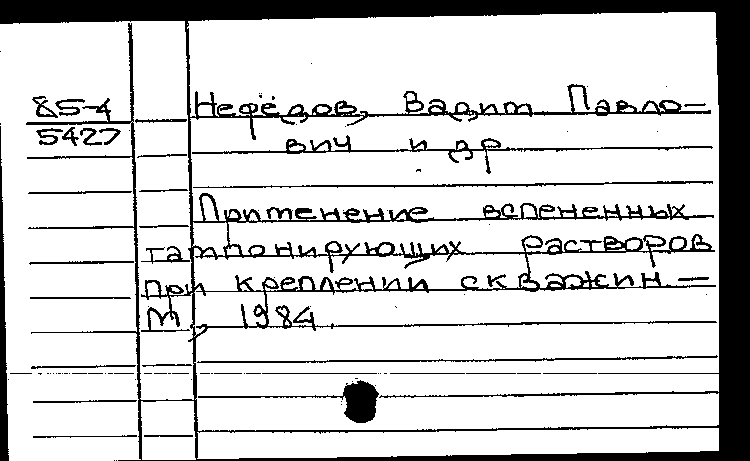 85-4
5427
Нефёдов, Вадим Павло-
вич и др
Применение вспененных
тампонирующих растворов
при креплении скважин. —
М, 1984.